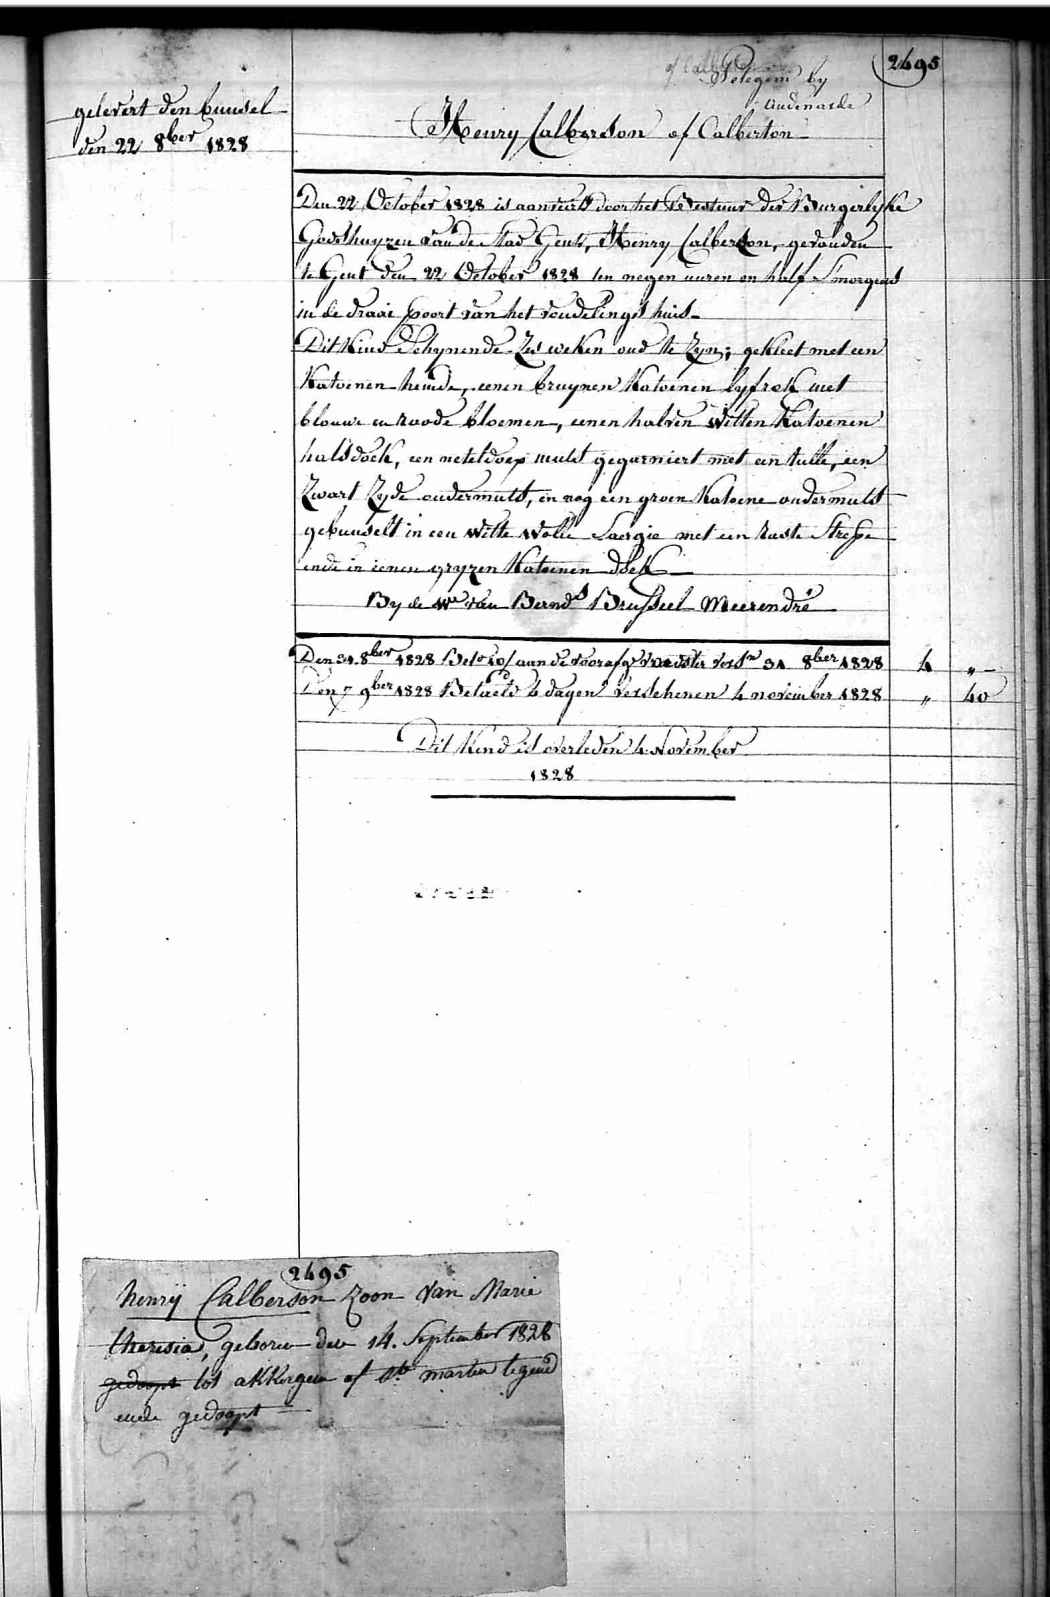 2495
Petegem by
Audenarde
gelevert den bunsel
den 22 8ber 1828
Henry Calberson of Calberton
Den 22 October 1828 is aanveert door het Bestuur der Burgerlyke
Godshuyzen van de Stad Gent, Henry Calberson, gevonden
te Gent den 22 October 1828 ten negen uuren en half Smorgens
in de draai poort van het vondelings huis
Dit Kind Schynende Zes weken oud te Zyn; gekleet met een
Katoenen hemde, eenen bruynen Katoenen lyfrok met
blouwe en roode bloemen, eenen halven witten Katoenen
halsdoek, een neteldoex muts gegarniert met een tulle, een
Zwart Zyde ondermuts, en nog een groen Katoene ondermuts
gebunselt in een witte wolle Saergie met een Streepe
ende in eenen gryzen Katoenen doek
By de We van Bernd Brusseel Meerendré
Den 31 8ber 1828 aan de voorafge 31 8ber 1828 4 "
Den 7 9ber 1828 Betaeld 4 dagen verschenen 4 november 1828 " 40
Dit Kind is overleden 4 November
1828
2495
henrij Calberson zoon van Marie
theresia, geboren den 14. September 1828
gedoopt tot akkergem of Ste marten
ende gedoopt